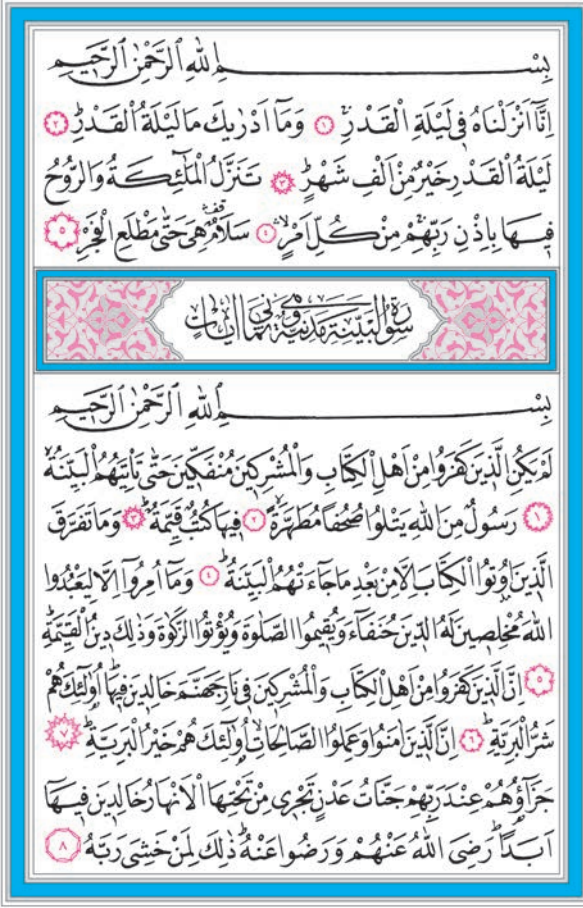 بِسْمِ اللهِ الرَّحْمٰنِ الرَّحِيمِ
اِنَّٓا اَنْزَلْنَاهُ فِى لَيْلَةِ الْقَدْرِۚ ﴿١﴾ وَمَٓا اَدْرٰيكَ مَا لَيْلَةُ الْقَدْرِۜ ﴿٢﴾
لَيْلَةُ الْقَدْرِ خَيْرٌ مِنْ اَلْفِ شَهْرٍۜ ﴿٣﴾ تَنَزَّلُ الْمَلٰٓئِكَةُ وَالرُّوحُ
فِيهَا بِاِذْنِ رَبِّهِمْۚ مِنْ كُلِّ اَمْرٍۙ ﴿٤﴾ سَلَامٌ۠ هِىَ حَتّٰى مَطْلَعِ الْفَجْرِ ﴿٥﴾
سُورَةُ الْبَيِّنَةِ مَدَنِيَّةٌ وَهِىَ ثَمَانِى اٰيَاتٍ
بِسْمِ اللهِ الرَّحْمٰنِ الرَّحِيمِ
لَمْ يَكُنِ الَّذِينَ كَفَرُوا مِنْ اَهْلِ الْكِتَابِ وَالْمُشْرِكِينَ مُنْفَكِّينَ حَتّٰى تَاْتِيَهُمُ الْبَيِّنَةُۙ
﴿١﴾ رَسُولٌ مِنَ اللهِ يَتْلُوا صُحُفًا مُطَهَّرَةًۙ ﴿٢﴾ فِيهَا كُتُبٌ قَيِّمَةٌۜ ﴿٣﴾ وَمَا تَفَرَّقَ
الَّذِينَ اُوتُوا الْكِتَابَ اِلَّا مِنْ بَعْدِ مَا جَٓاءَتْهُمُ الْبَيِّنَةُۜ ﴿٤﴾ وَمَٓا اُمِرُٓوا اِلَّا لِيَعْبُدُوا
اللهَ مُخْلِصِينَ لَهُ الدِّينَ حُنَفَٓاءَ وَيُقِيمُوا الصَّلٰوةَ وَيُؤْتُوا الزَّكٰوةَ وَذٰلِكَ دِينُ الْقَيِّمَةِۜ
﴿٥﴾ اِنَّ الَّذِينَ كَفَرُوا مِنْ اَهْلِ الْكِتَابِ وَالْمُشْرِكِينَ فِى نَارِ جَهَنَّمَ خَالِدِينَ فِيهَاۜ اُولٰٓئِكَ هُمْ
شَرُّ الْبَرِيَّةِۜ ﴿٦﴾ اِنَّ الَّذِينَ اٰمَنُوا وَعَمِلُوا الصَّالِحَاتِۙ اُولٰٓئِكَ هُمْ خَيْرُ الْبَرِيَّةِۜ ﴿٧﴾
جَزَٓاؤُهُمْ عِنْدَ رَبِّهِمْ جَنَّاتُ عَدْنٍ تَجْرِى مِنْ تَحْتِهَا الْاَنْهَارُ خَالِدِينَ فِيهَٓا
اَبَدًاۜ رَضِىَ اللهُ عَنْهُمْ وَرَضُوا عَنْهُۜ ذٰلِكَ لِمَنْ خَشِىَ رَبَّهُ ﴿٨﴾